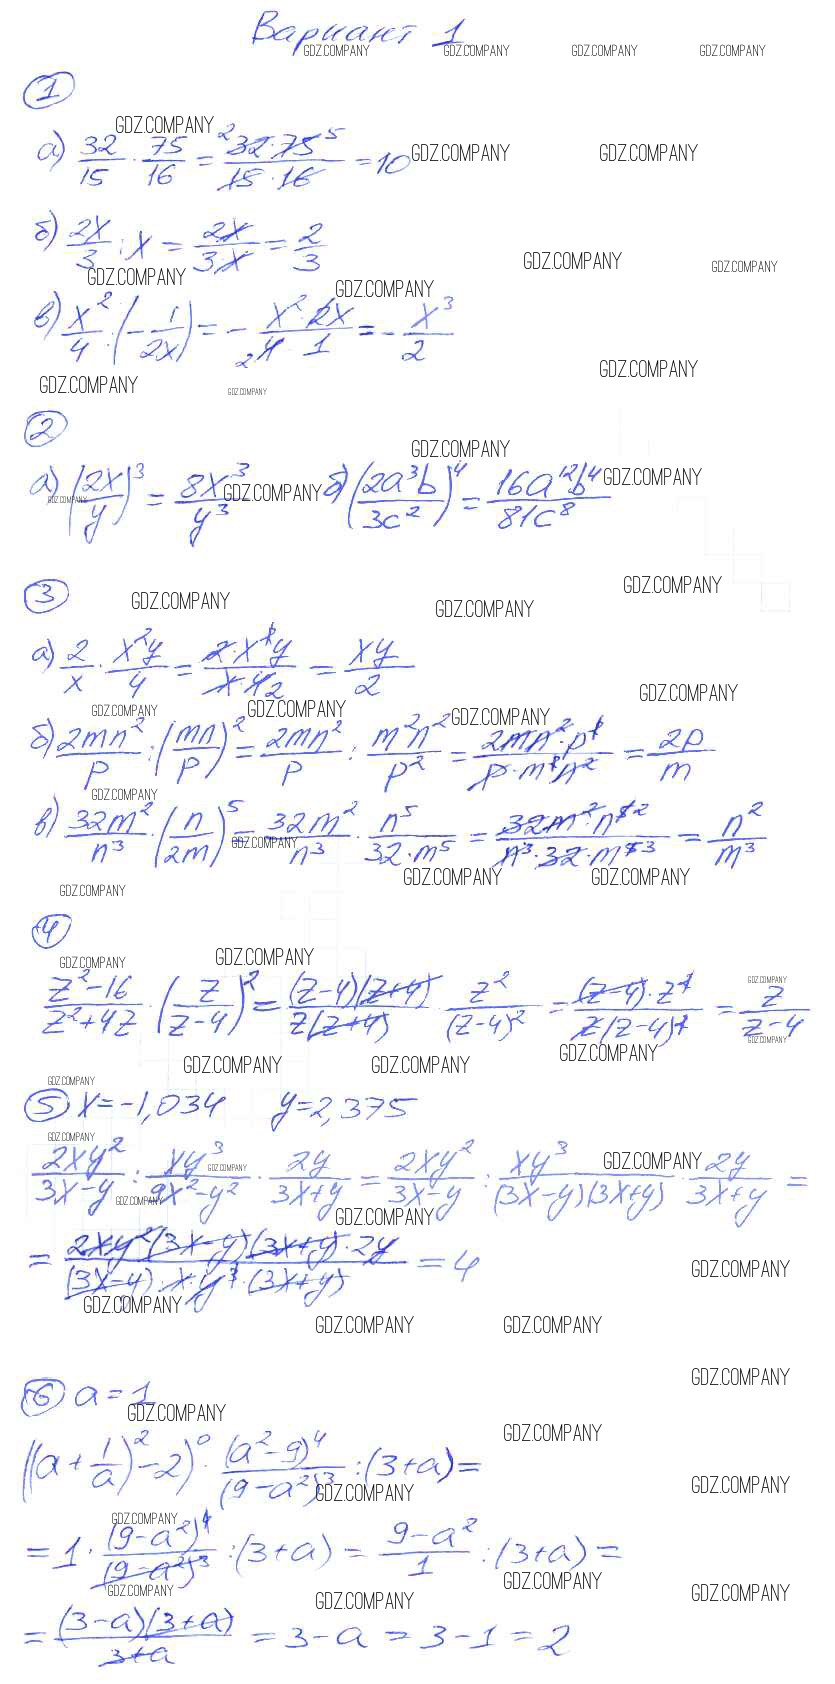 Вариант 1
GDZ.COMPANY GDZ.COMPANY GDZ.COMPANY GDZ.COMPANY
1
GDZ.COMPANY
а) 32/15 · 75/16 = 32·75/15·16 = 10 GDZ.COMPANY GDZ.COMPANY
б) 2x/3 : x = 2x/3x = 2/3
GDZ.COMPANY GDZ.COMPANY
GDZ.COMPANY GDZ.COMPANY
в) x²/4 : (-1/2x) = - x²·2x/4·1 = - x³/2
GDZ.COMPANY
GDZ.COMPANY GDZ.COMPANY
2
GDZ.COMPANY
а) (2x/y)³ = 8x³/y³ GDZ.COMPANY б) (2a³b/3c²)⁴ = 16a¹²b⁴/81c⁸ GDZ.COMPANY
GDZ.COMPANY
3
GDZ.COMPANY GDZ.COMPANY GDZ.COMPANY
а) 2/x · x²y/4 = 2·x²y/x·4 = xy/2
GDZ.COMPANY
GDZ.COMPANY GDZ.COMPANY GDZ.COMPANY
б) 2mn²/p : (mn/p)² = 2mn²/p : m²n²/p² = 2mn²·p²/p·m²n² = 2p/m
GDZ.COMPANY
в) 32m²/n³ · (n/2m)⁵ = 32m²/n³ · n⁵/32·m⁵ = 32m²·n⁵/n³·32·m⁵ = n²/m³
GDZ.COMPANY
GDZ.COMPANY GDZ.COMPANY GDZ.COMPANY
4
GDZ.COMPANY GDZ.COMPANY
z²-16/z²+4z · (z/z-4)² = (z-4)(z+4)/z(z+4) · z²/(z-4)² = (z-4)·z²/z(z-4)² = z/z-4
GDZ.COMPANY GDZ.COMPANY
GDZ.COMPANY GDZ.COMPANY GDZ.COMPANY
GDZ.COMPANY
5 x=-1,034 y=2,375
GDZ.COMPANY
2xy²/3x-y : xy³/9x²-y² · 2y/3x+y = 2xy²/3x-y : xy³/(3x-y)(3x+y) · 2y/3x+y =
GDZ.COMPANY GDZ.COMPANY GDZ.COMPANY
GDZ.COMPANY
= 2xy²(3x-y)(3x+y)·2y/(3x-y)·x·y³·(3x+y) = 4
GDZ.COMPANY
GDZ.COMPANY
GDZ.COMPANY GDZ.COMPANY
GDZ.COMPANY
6 a = 1
GDZ.COMPANY GDZ.COMPANY
((a + 1/a)² - 2)⁰ · (a²-9)⁴/(9-a²)³ : (3+a) =
GDZ.COMPANY GDZ.COMPANY
GDZ.COMPANY
= 1 · (9-a²)⁴/(9-a²)³ : (3+a) = 9-a²/1 : (3+a) =
GDZ.COMPANY GDZ.COMPANY GDZ.COMPANY GDZ.COMPANY
= (3-a)(3+a)/3+a = 3-a = 3-1 = 2